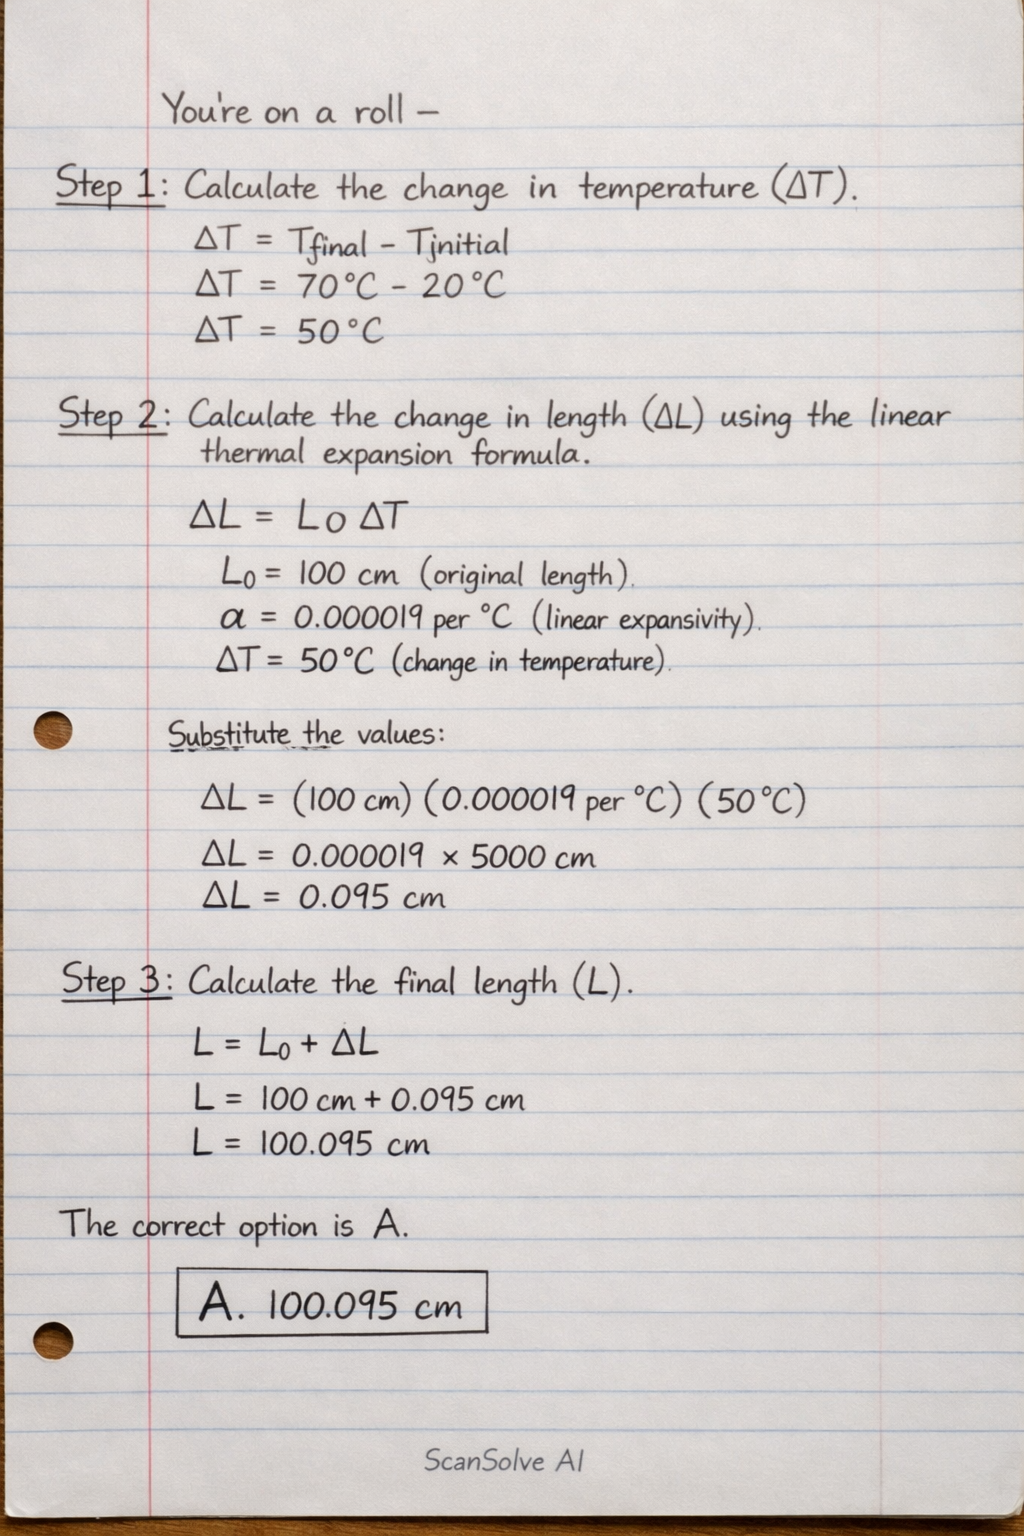 You're on a roll –
Step 1: Calculate the change in temperature (ΔT).
ΔT = Tfinal - Tjnitial
ΔT = 70°C - 20°C
ΔT = 50°C
Step 2: Calculate the change in length (ΔL) using the linear
thermal expansion formula.
ΔL = Lo ΔT
L₀ = 100 cm (original length).
α = 0.000019 per °C (linear expansivity).
ΔT = 50°C (change in temperature).
Substitute the values:
ΔL = (100 cm) (0.000019 per °C) (50°C)
ΔL = 0.000019 × 5000 cm
ΔL = 0.095 cm
Step 3: Calculate the final length (L).
L = L₀ + ΔL
L = 100 cm + 0.095 cm
L = 100.095 cm
The correct option is A.
A. 100.095 cm
ScanSolve AI